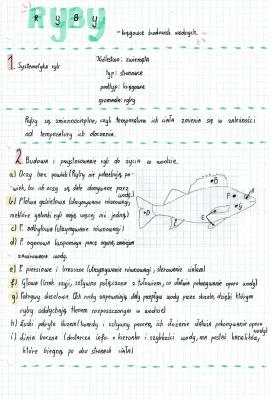 RYBY
- kręgowce środowisk wodnych.
1. Systematyka ryb
Królestwo: zwierzęta
typ: strunowce
podtyp: kręgowce
gromada: ryby
Ryby są zmiennocieplne, czyli temperatura ich ciała zmienia się w zależności
od temperatury ich otoczenia.
2. Budowa i przystosowanie ryb do życia w wodzie.
a) Oczy bez powiek (Ryby nie potrzebują po-
wiek, bo ich oczy są stale obmywane przez
wodę.)
b) P. grzbietowa (utrzymywanie równowagi,
niektóre gatunki ryb mają więcej niż jedną)
c) P. odbytowa (utrzymywanie równowagi)
d) P. ogonowa
zawirowania wody.
e) P. piersiowe i brzuszne (utrzymywanie równowagi, sterowanie ciałem)
f) Głowa (brak szyi, sztywno połączona z tułowiem, co ułatwia pokonywanie oporu wody)
g) Pokrywy skrzelowe (Ich ruchy zapewniają stały przepływ wody przez skrzela, dzięki którym
ryby oddychają tlenem rozpuszczonym w wodzie)
h) Łuski pokryte śluzem (twardy i sztywny pancerz, ich ułożenie ułatwia pokonywanie oporu
wody)
i) Linia boczna (dostarcza info. o kierunku i szybkości wody, ma postać kanalików,
które biegną po obu stronach ciała)